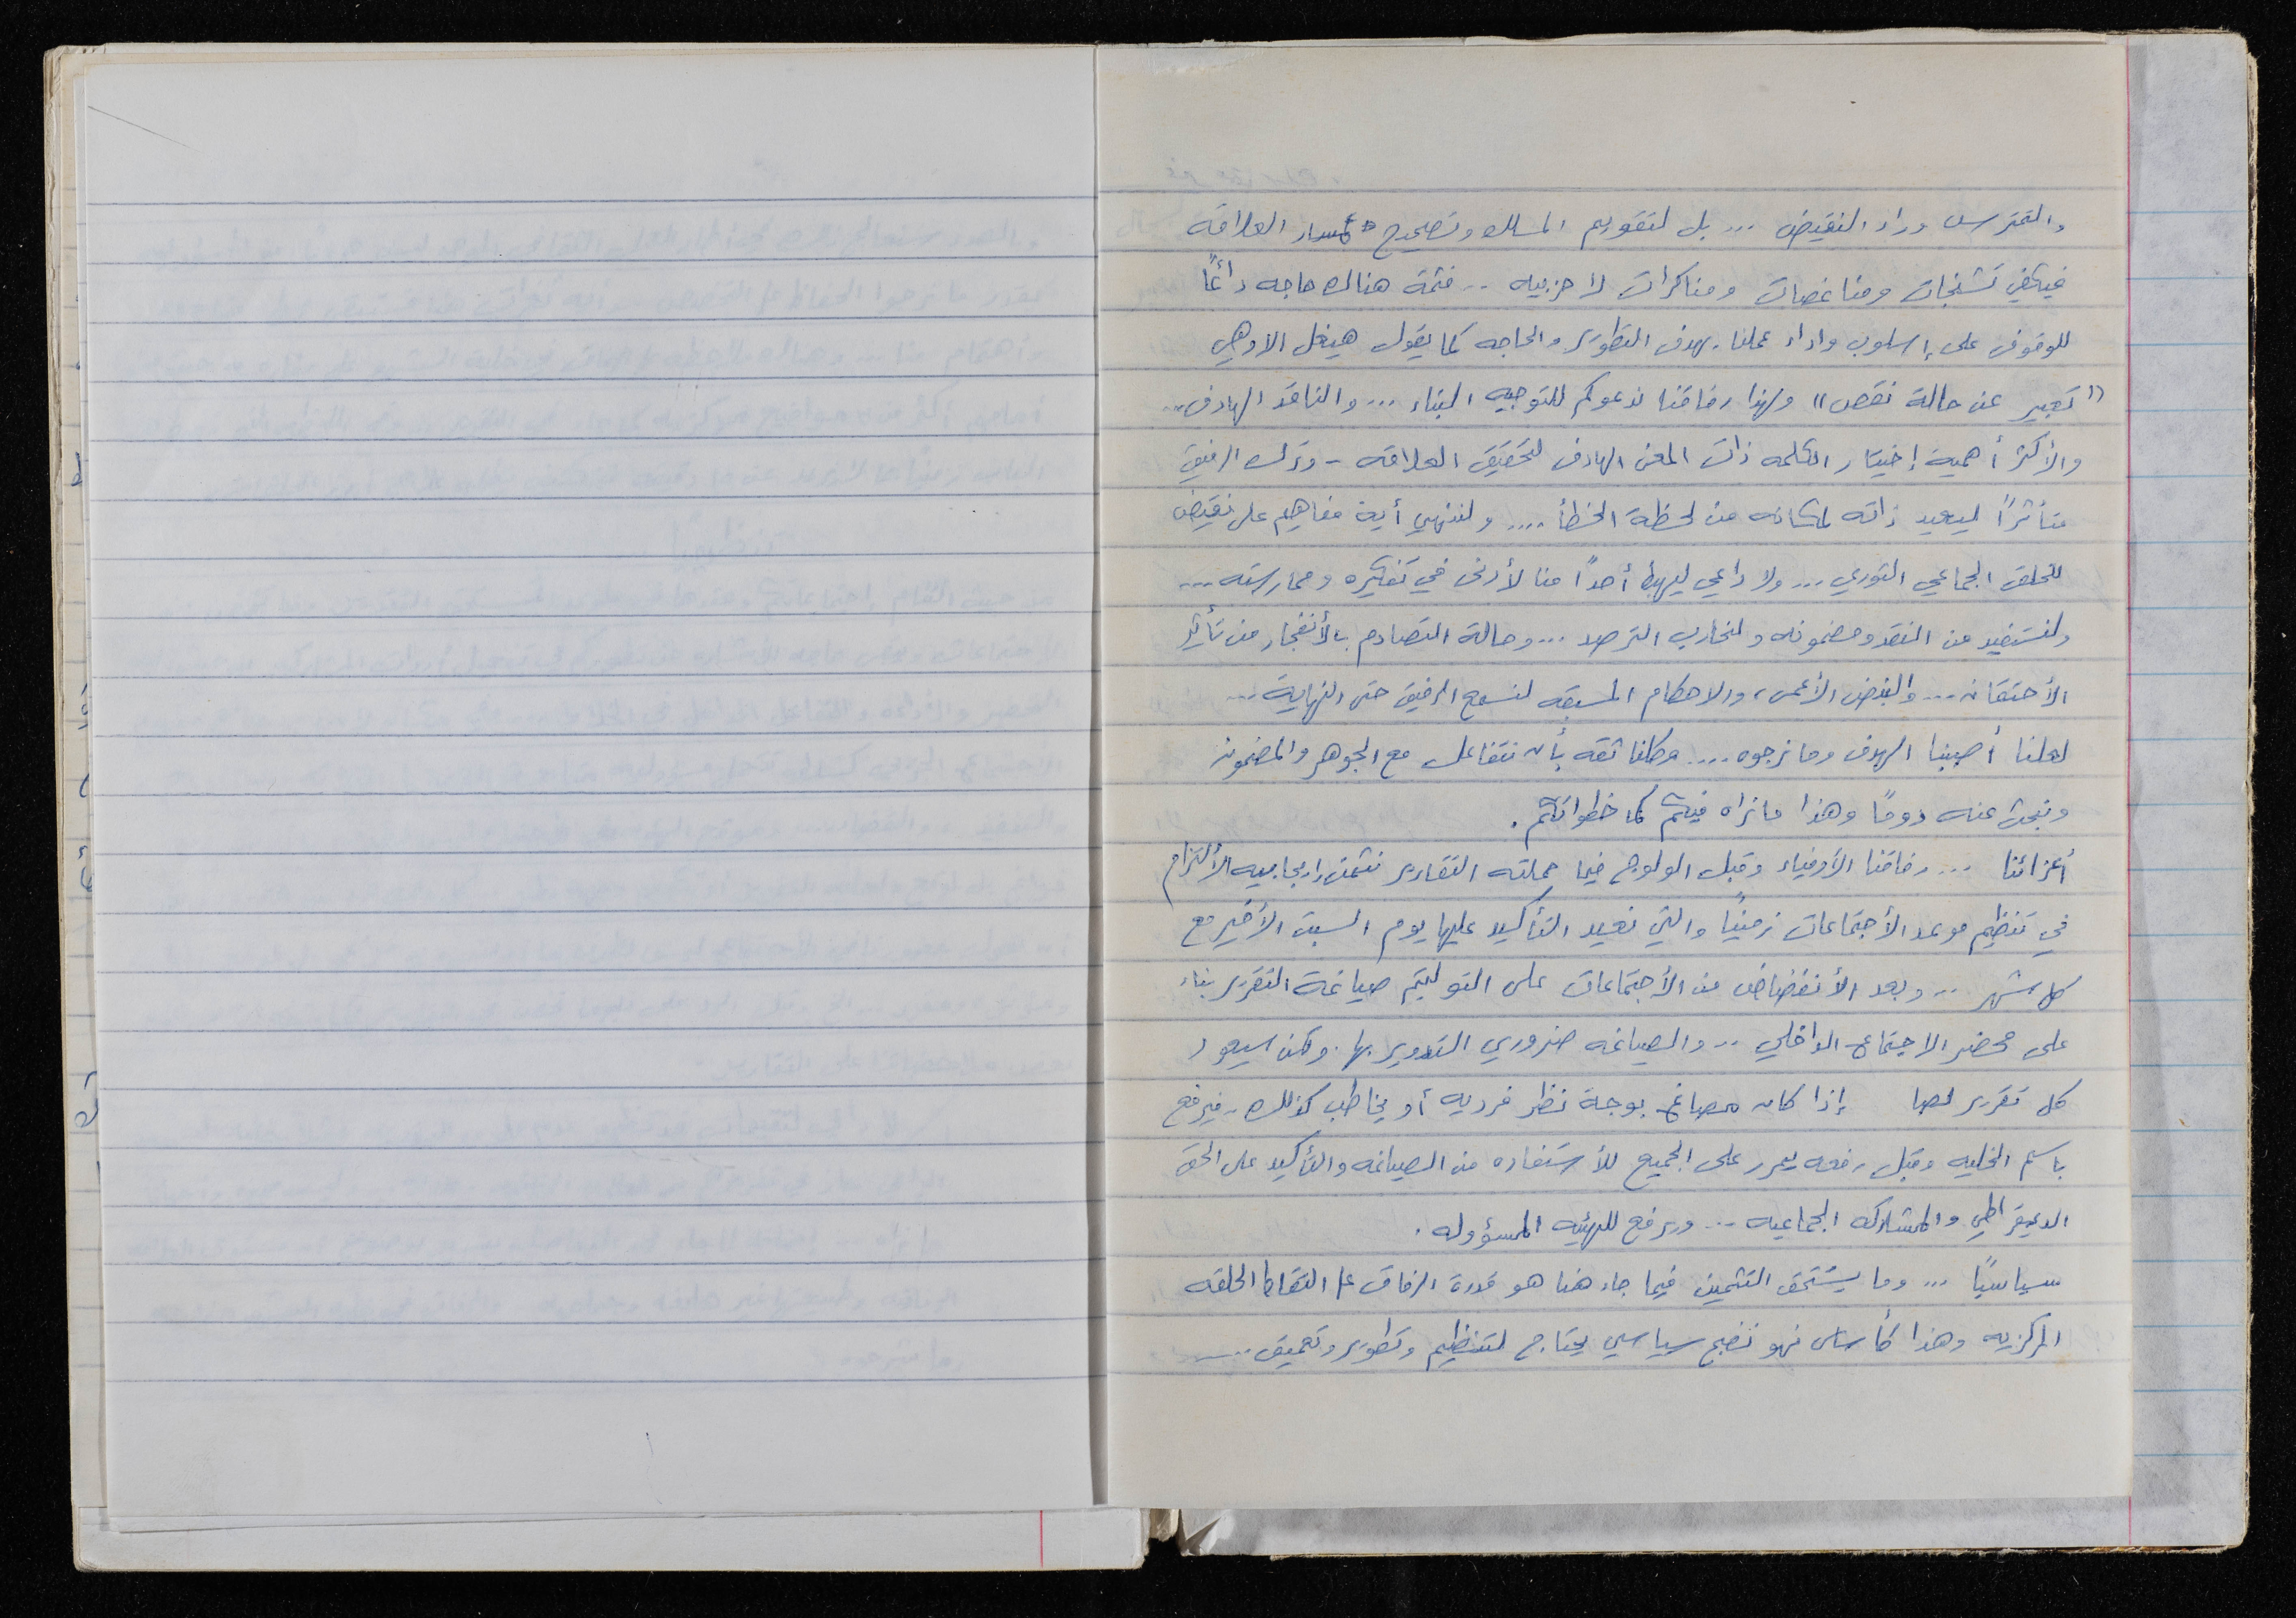 والتمترس وراء النقيض ... بل لتقويم المسلك وتصحيح مسار العلاقه
فيكفي تشنجات ومناغصات ومناكرات لا حزبيه .. فثمة هناك حاجه دائمًا
للوقوف على إسلوب واداء عملنا بهدف التطوير والحاجه كما يقول هيغل الا وهي
"تعبير عن حالة نقص" ولهذا رفاقنا ندعوكم للتوجيه البناء ... والناقد الهادف ..
والأكثر أهمية إختيار الكلمه ذات المعنى الهادف لتحقيق العلاقه - وترك الرفيق
متأثرًا ليعيد ذاته لمكانه من لحظة الخطأ .... ولننهي أية مفاهيم على نقيض
للخلق الجماعي الثوري ... ولا داعي ليهبط أحدًا منا لأدنى في تفكيره وممارسته ...
ولنستفيد من النقد ومضمونه ولنحارب الترصد ... وحالة التصادم بالأنفجار من تأثير
الأحتقان ... والبغض الأعمى، والاحكام المسبقه لنسمع الرفيق حتى النهاية ...
لعلنا أصبنا الهدف وما نرجوه .... وكلنا ثقه بأن نتفاعل مع الجوهر والمضمون
ونبحث عنه دومًا وهذا ما نراه فيكم كما خطواتكم .
أعزائنا ... رفاقنا الأوفياء وقبل الولوج فيما حملته التقارير نثمن إيجابيه الألتزام
في تنظيم موعد الأجتماعات زمنيًا والتي نعيد التأكيد عليها يوم السبت الأخير مع
كل شهر .. وبعد الأنفضاض من الأجتماعات على التو ليتم صياغة التقرير بناء
على محضر الاجتماع الداخلي .. والصياغه ضروري التدوير بها . ولكن سيعود
كل تقرير لصا إذا كان مصاغ بوجة نظر فرديه أو يخاطب كذلك . فيرفع
باسم الخليه وقبل رفعه يمرر على الجميع للأستفاده من الصياغه والتأكيد على الحق
الديمقراطي والمشاركه الجماعيه ... ويرفع للهيئه المسؤوله .
سياسيًا ... وما يستحق التثمين فيما جاء هنا هو قدرة الرفاق على التقاط الحلقه
المركزيه وهذا كأساس فهو نضج سياسي يحتاج لتنظيم وتطوير وتعميق ..